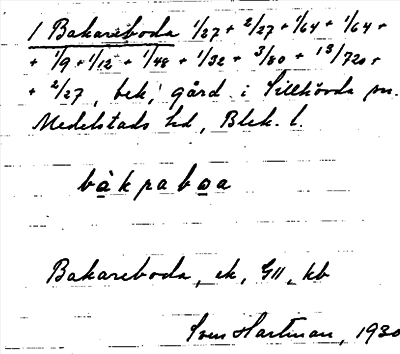 1 Bakareboda 1/27 + 2/27 + 1/64 + 1/64 +
+ 1/9 + 1/12 + 1/48 + 1/32 + 3/80 + 13/720 +
+ 2/27, bek, gård i Sillhövda sn.
Medelstads hd, Blek. l.
bàkraboa
Bakareboda, ek, GII, kb
Sven Hartman, 1930